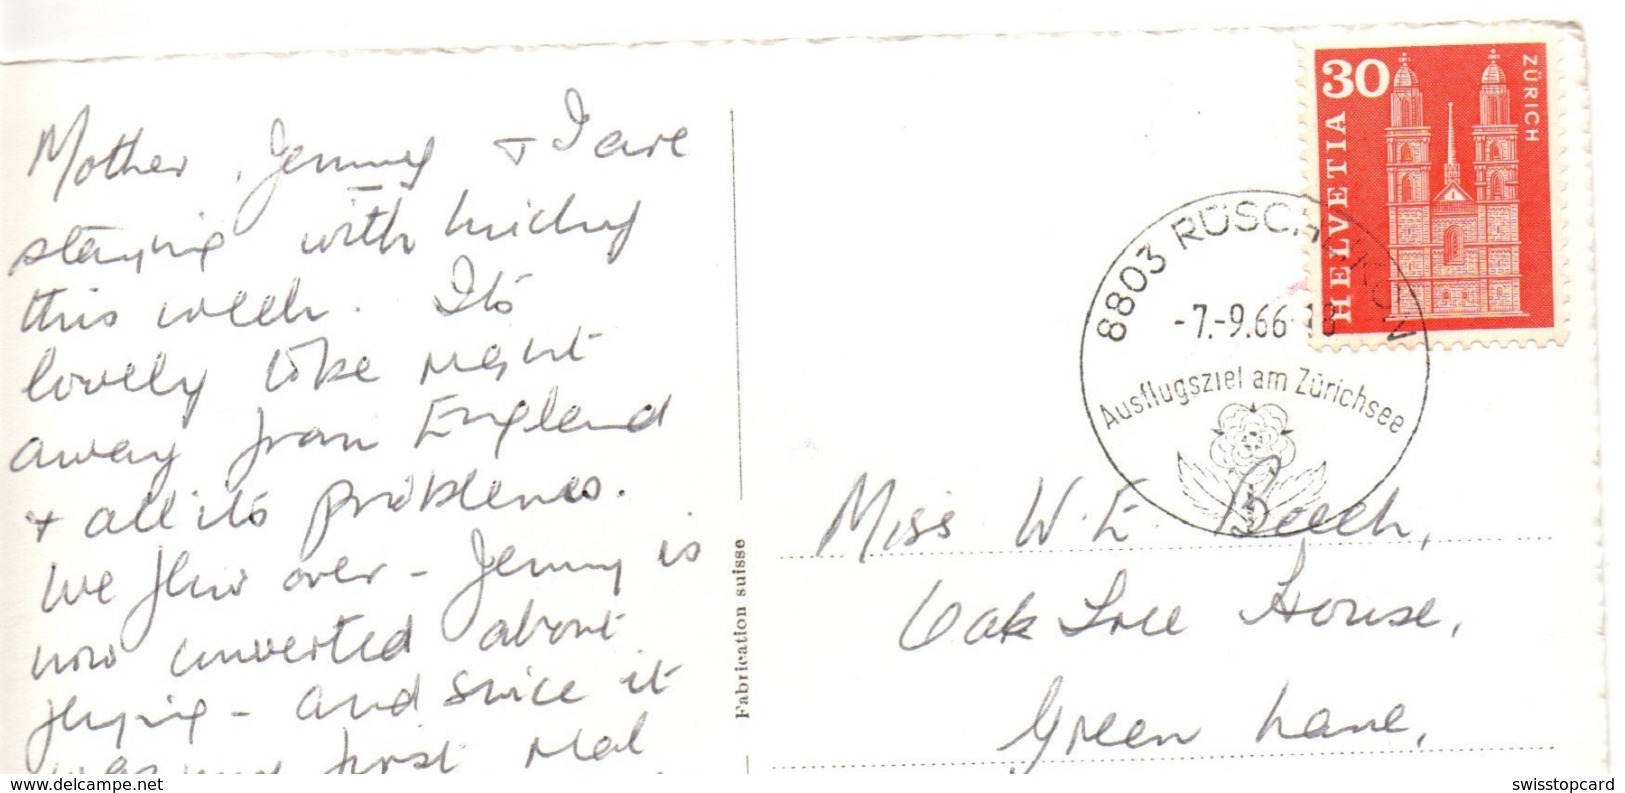 Mother, Jenny + I are
staying with Micky
this week. It's
lovely to be right
away from England
+ all its problems.
We flew over - Jenny is
now converted about
flying - and since it
was my first real
Fabrication suisse
30
HELVETIA
ZÜRICH
8803 RÜSCHLIKON
-7.-9.66-18
Ausflugsziel am Zürichsee
Miss W. E. Beech,
Oak Tree House,
Green Lane,
www.delcampe.net
swisstopcard